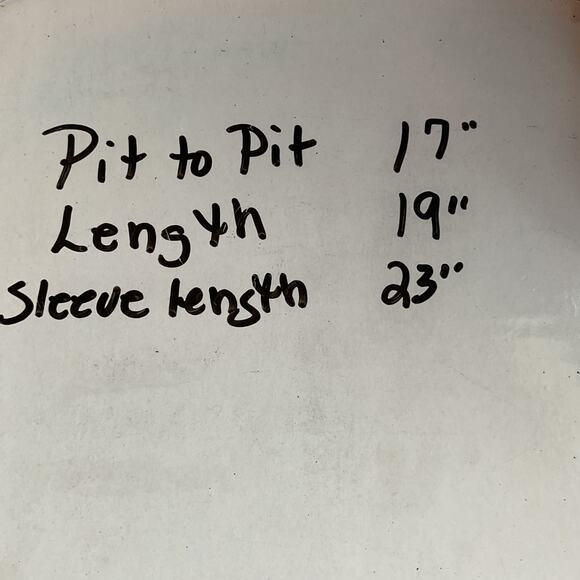 Pit to Pit 17"
Length 19"
Sleeve Length 23"